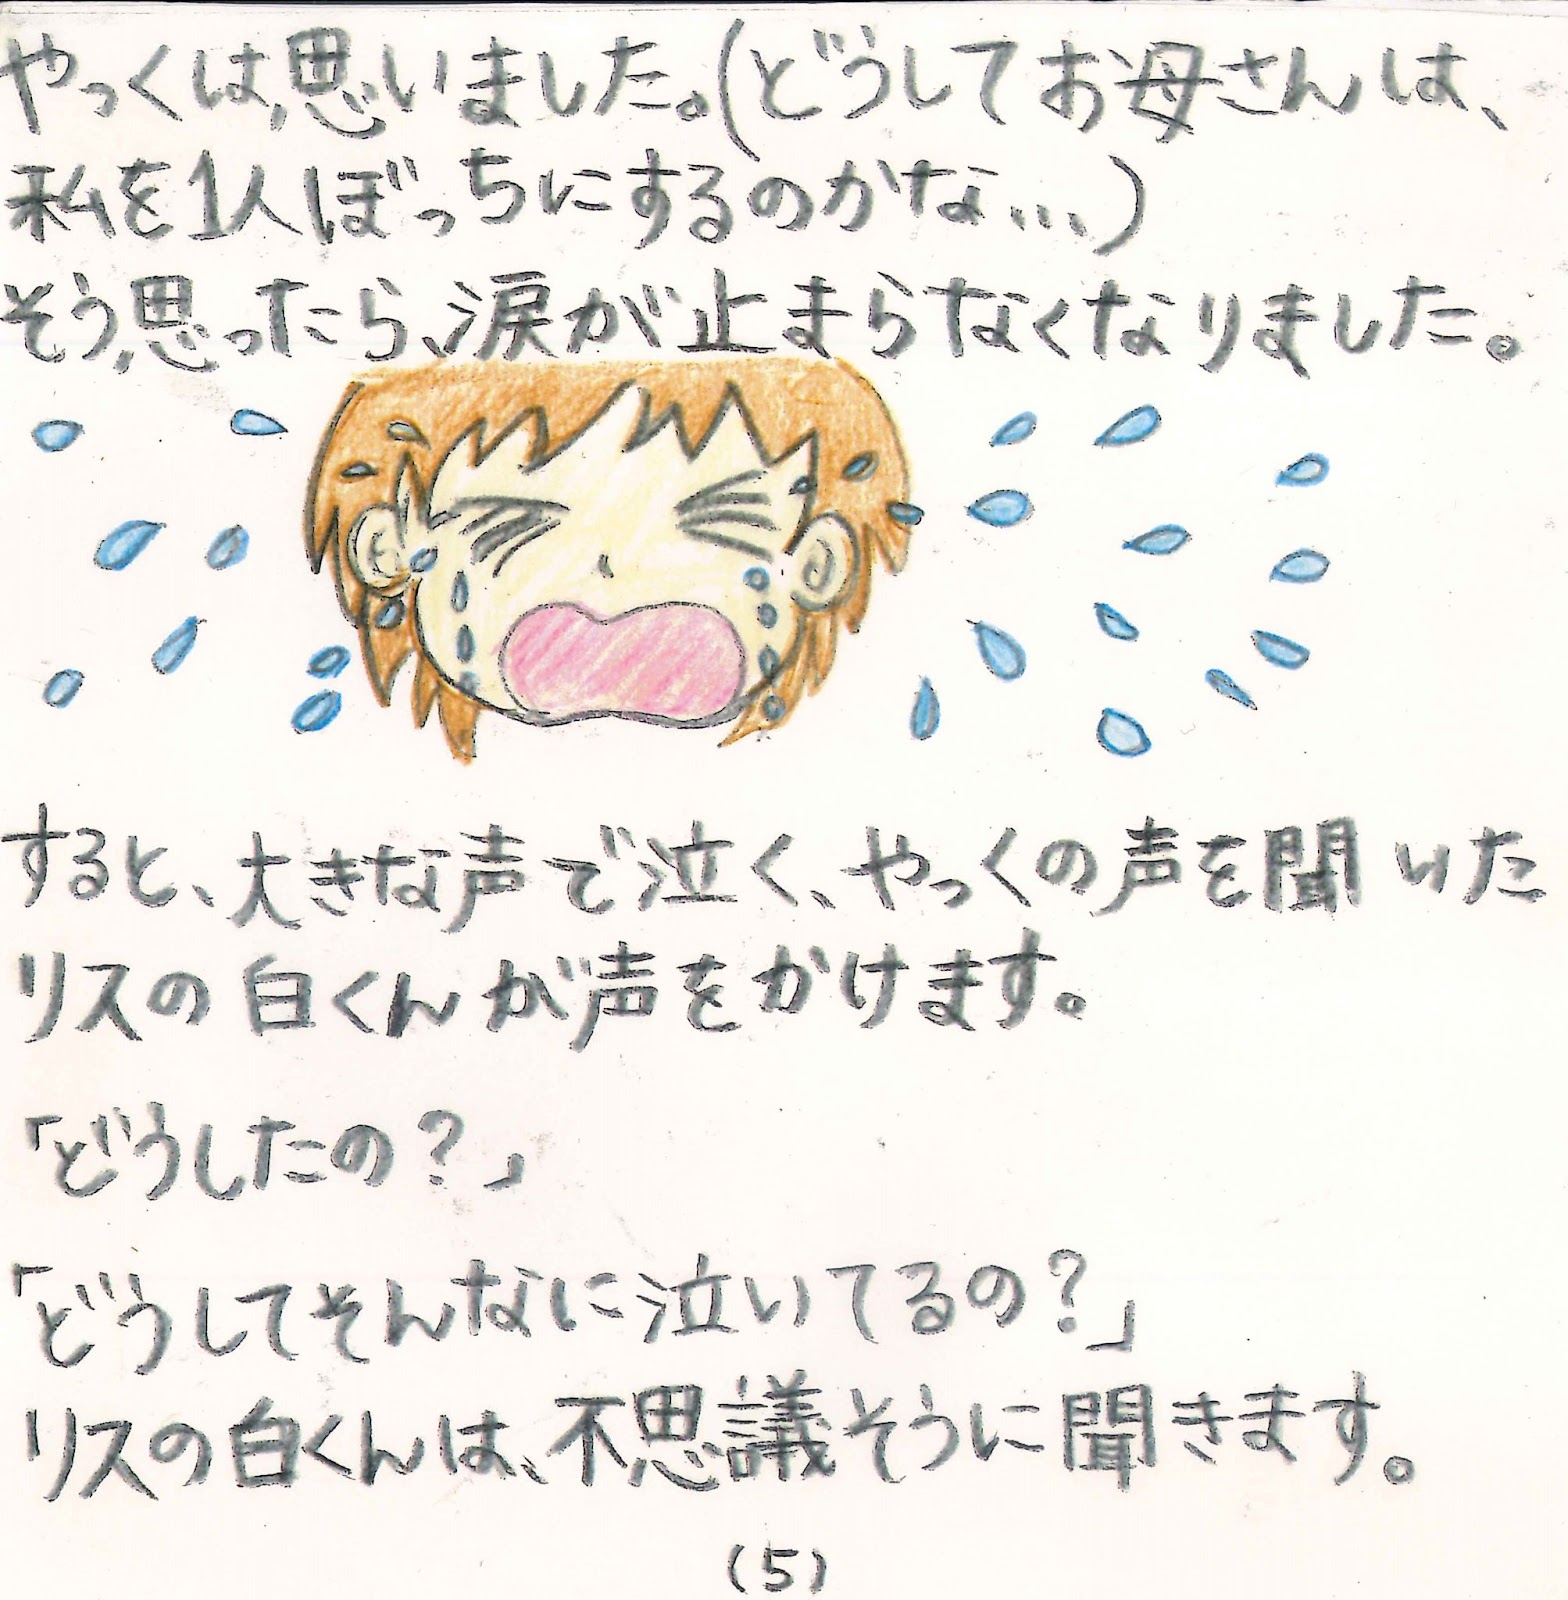 やっくは、思いました。(どうしてお母さんは、
私を1人ぼっちにするのかな...)
そう、思ったら、涙が止まらなくなりました。
すると、大きな声で泣く、やっくの声を聞いた
リスの白くんが声をかけます。
「どうしたの？」
「どうしてそんなに泣いてるの？」
リスの白くんは、不思議そうに聞きます。
(5)